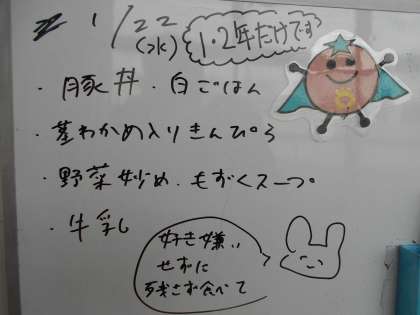 1/22
(水)
1・2年だけです
・豚丼・白ごはん
・茎わかめ入りきんぴら
・野菜炒め・もずくスープ
・牛乳
好き嫌い
せずに
残さず食べて